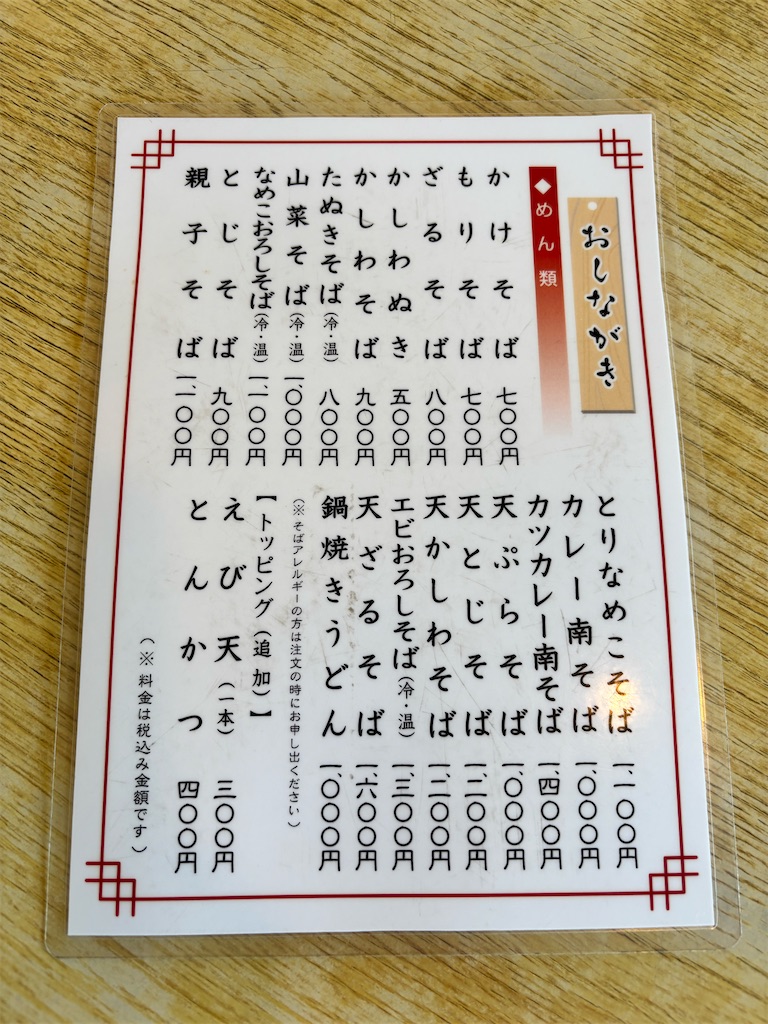 おしながき
◆めん類
かけそば 七〇〇円
もりそば 七〇〇円
ざるそば 八〇〇円
かしわぬき 五〇〇円
かしわそば 九〇〇円
たぬきそば（冷・温） 八〇〇円
山菜そば（冷・温） 一、〇〇〇円
なめこおろしそば（冷・温） 一、一〇〇円
とじそば 九〇〇円
親子そば 一、一〇〇円
とりなめこそば 一、一〇〇円
カレー南そば 一、〇〇〇円
カツカレー南そば 一、四〇〇円
天ぷらそば 一、〇〇〇円
天とじそば 一、二〇〇円
天かしわそば 一、二〇〇円
エビおろしそば（冷・温） 一、三〇〇円
天ざるそば 一、六〇〇円
鍋焼きうどん 一、〇〇〇円
（※そばアレルギーの方は注文の時にお申し出ください）
【トッピング（追加）】
えび天（一本） 三〇〇円
とんかつ 四〇〇円
（※料金は税込み金額です）